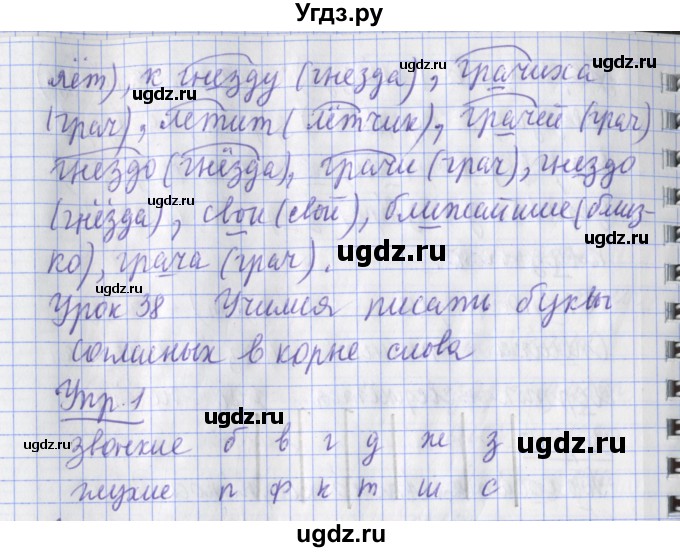 Угдз.ру
лёт), к гнезду (гнезда), грачиха
(грач), летит (лётчик), грачей (грач)
гнездо (гнёзда), грачи (грач), гнездо
(гнёзда), свои (свой), ближайшие (близ-
ко), грача (грач).
Урок 38 Учимся писать буквы
согласных в корне слова
Упр. 1
звонкие б в г д ж з
глухие п ф к т ш с
ugdz.ru
ugdz.ru
ugdz.ru
ugdz.ru
ugdz.ru
ugdz.ru
ugdz.ru
ugdz.ru
ugdz.ru
ugdz.ru
ugdz.ru
ugdz.ru
ugdz.ru
ugdz.ru